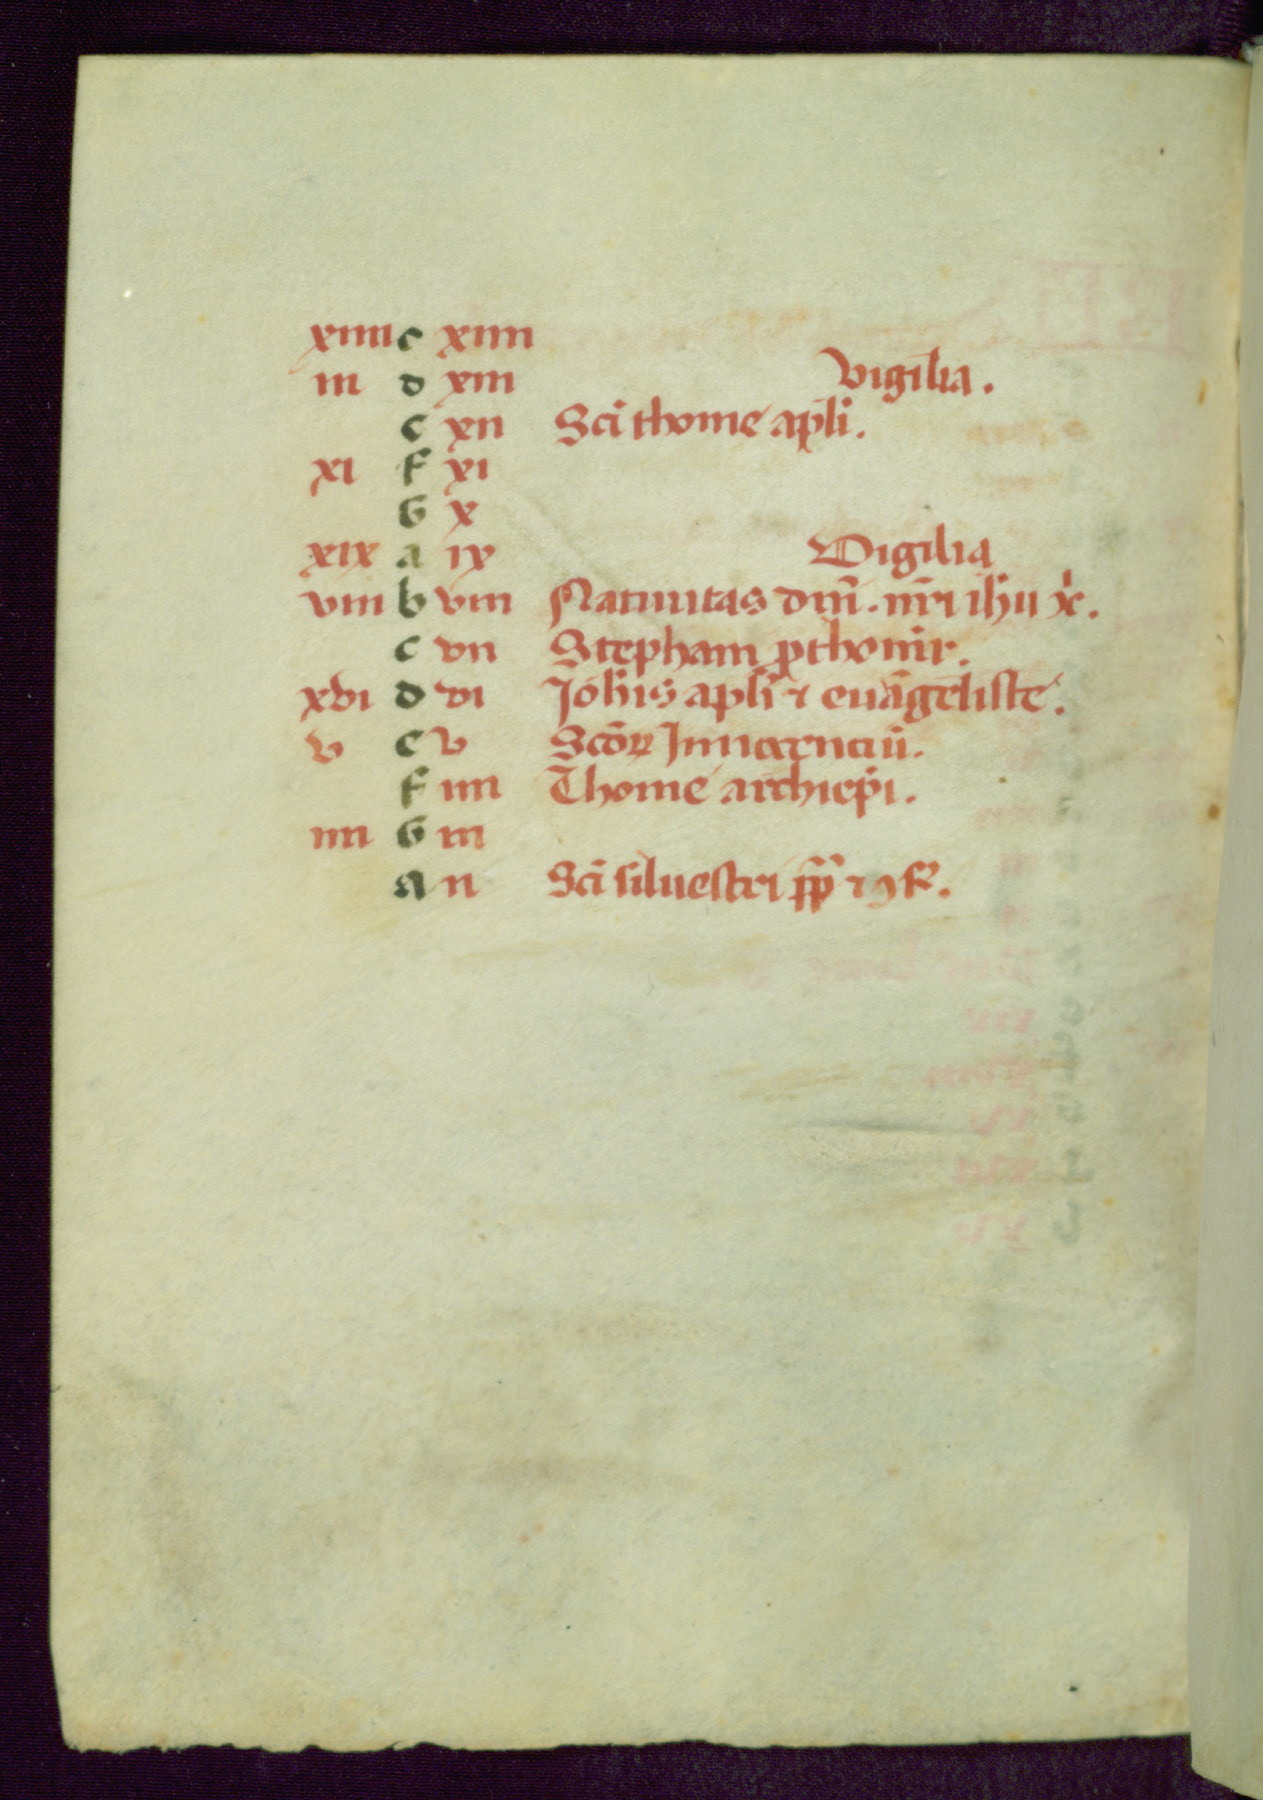 xiiii c xiiii
iii d xiii Vigilia.
e xii Sci thome apli.
xi f xi
G x
xix a ix Vigilia
viii b viii Natiuitas dni. nri ihu x.
c vii Stephani prthomr.
xvi d vi Johis apli ⁊ euangeliste.
v e v Scor Innocenciu.
f iiii Thome archiepi.
iiii G iii
a ii Sci siluestri pp ⁊ ꝯf.